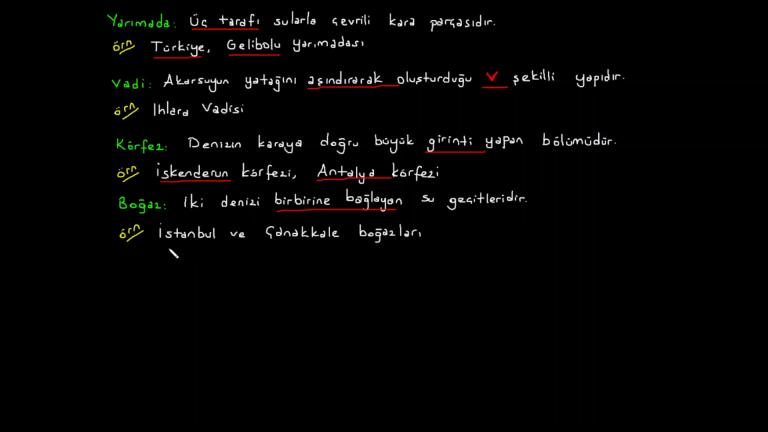 Yarımada: Üç tarafı sularla çevrili kara parçasıdır.
örn Türkiye, Gelibolu yarımadası
Vadi: Akarsuyun yatağını aşındırarak oluşturduğu V şekilli yapıdır.
örn Ihlara Vadisi
Körfez: Denizin karaya doğru büyük girinti yapan bölümüdür.
örn İskenderun körfezi, Antalya körfezi
Boğaz: İki denizi birbirine bağlayan su geçitleridir.
örn İstanbul ve Çanakkale boğazları